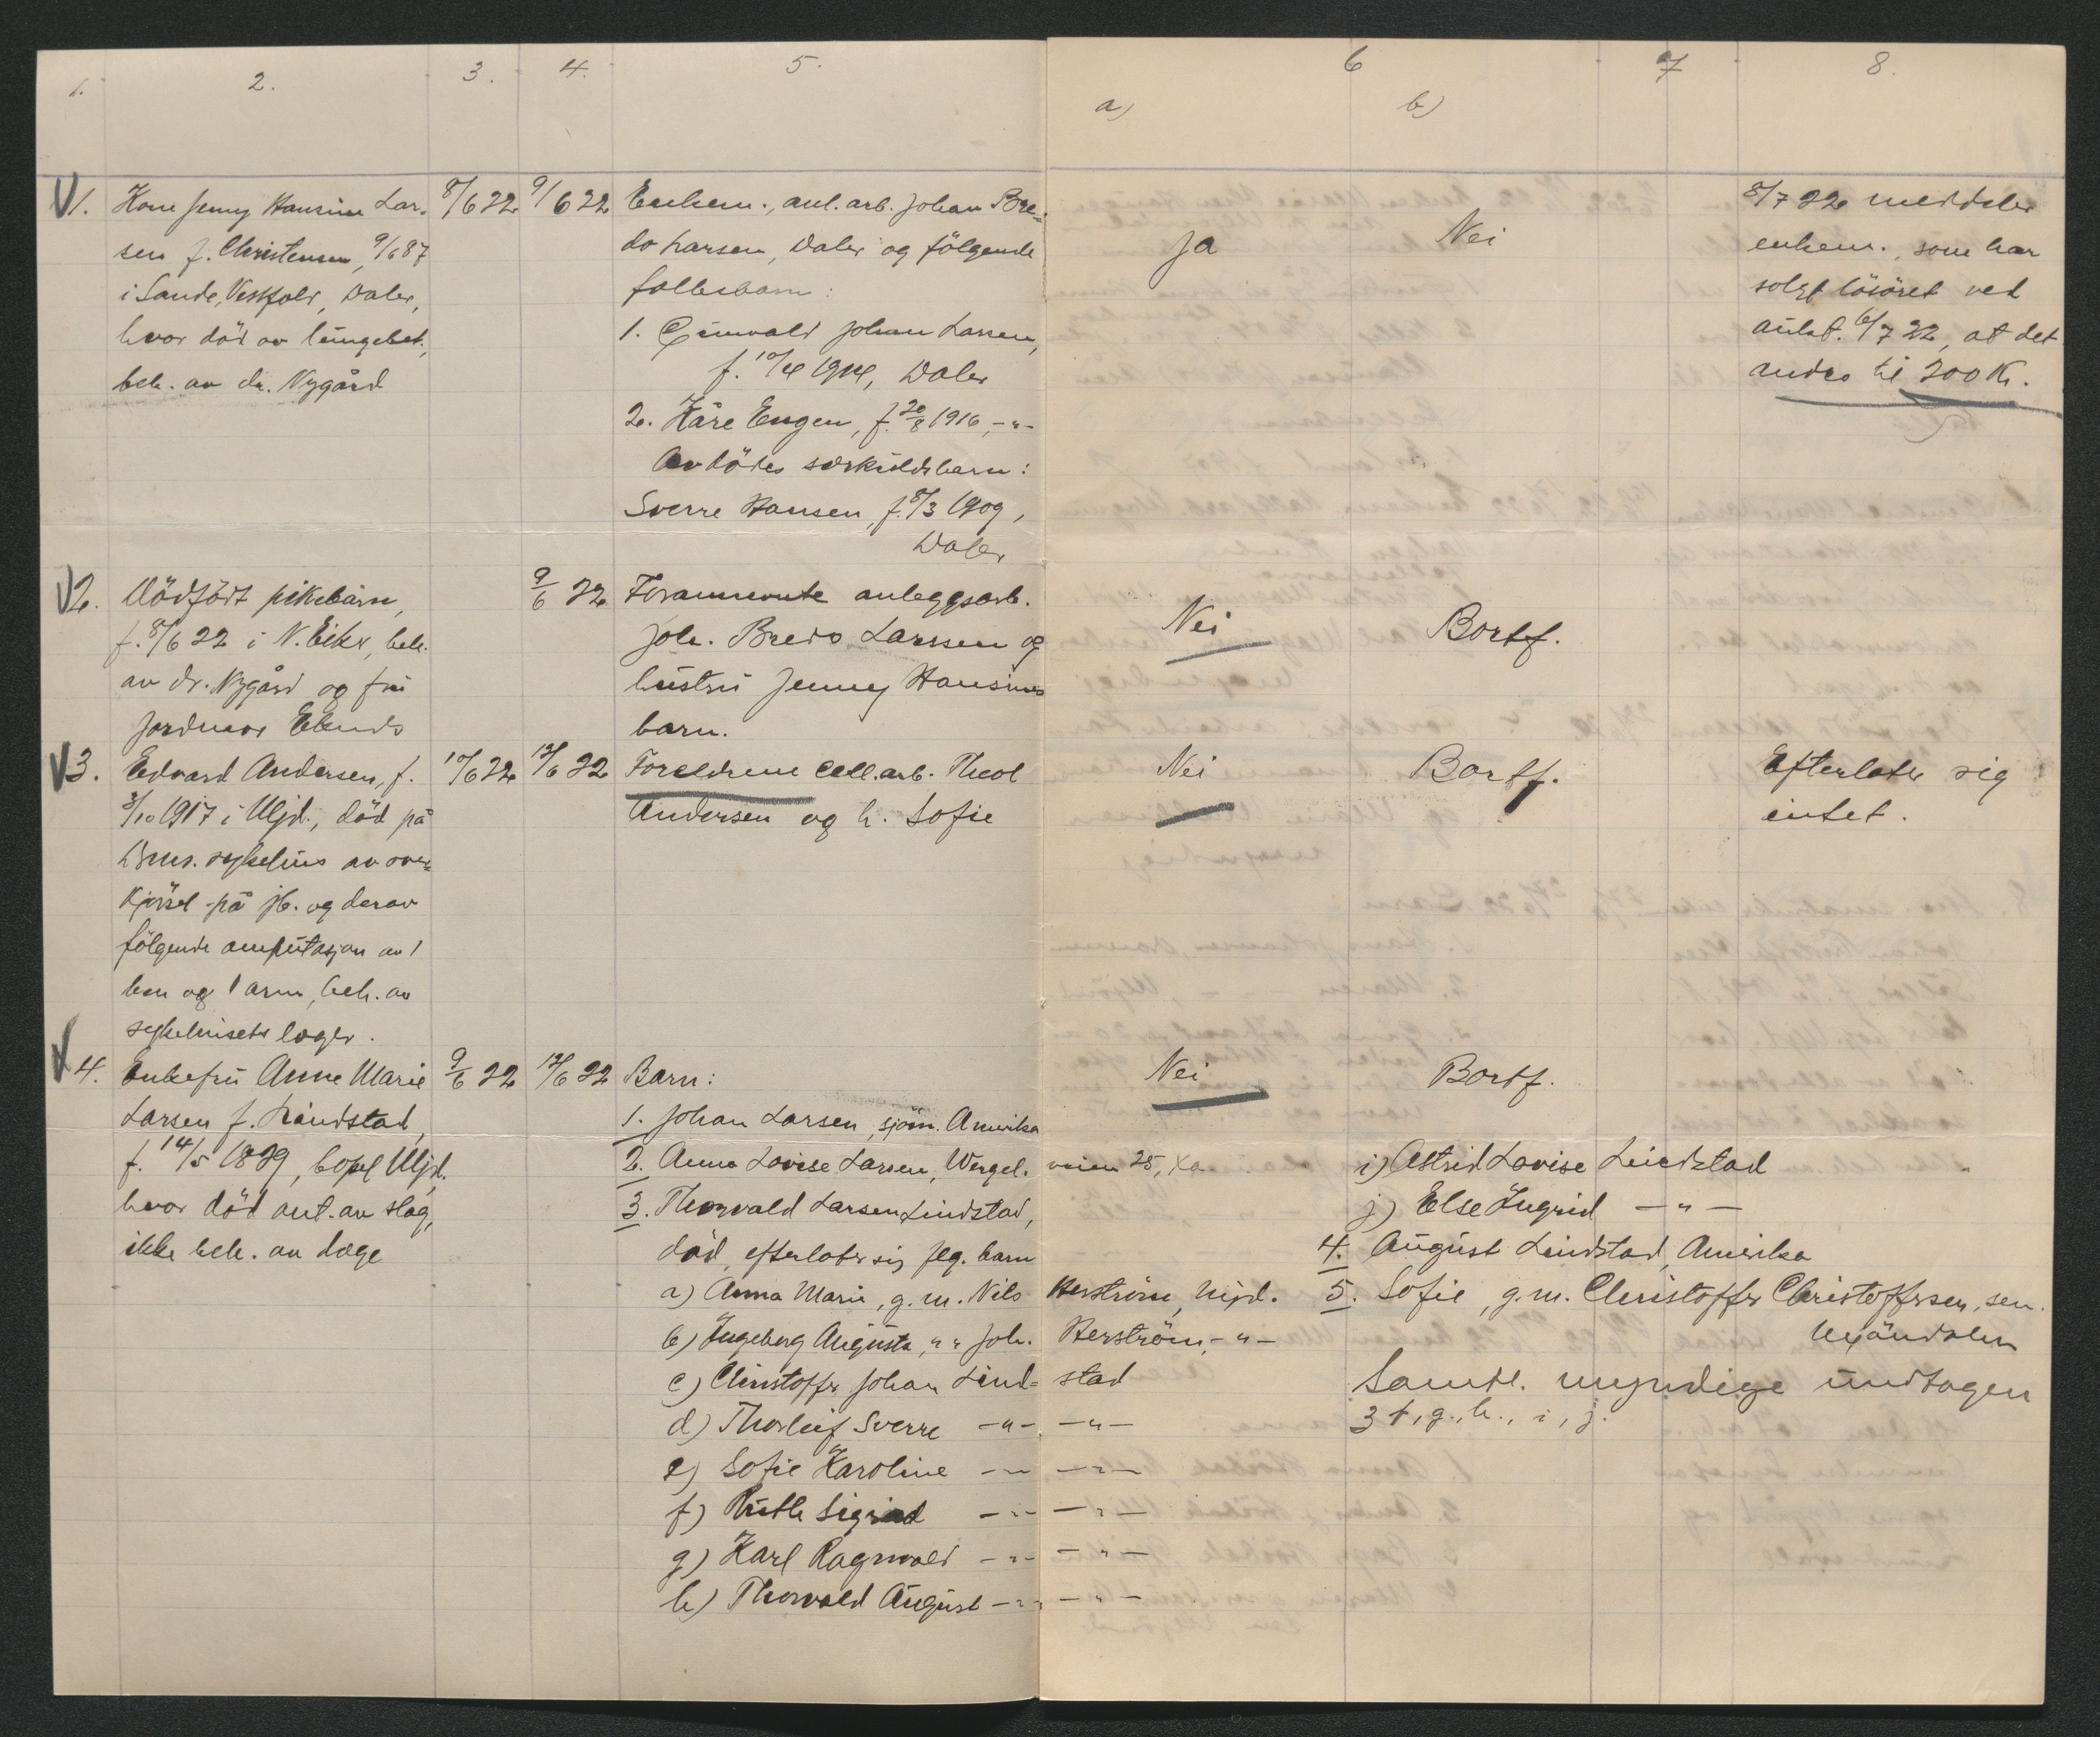 1. 2. 3. 4. 5. 6 7 8.
a) b)
1. Kone Jenny Hansine Lar-
sen f. Christensen, 9/6 87
i Sande, Vestfold, Daler,
hvor död av lungebet.,
beh. av dr. Nygård
8/6 22 9/6 22
Enkem., anl. arb. Johan Bre-
do Larsen, Daler og fölgende
fellesbarn:
1. Gunvald Johan Larsen,
f. 10/4 1914, Daler
2. Kåre Eugen, f. 20/8 1916, -"-
Avdödes særkuldsbarn:
Sverre Hansen, f. 8/3 1909,
Daler
Ja Nei
8/7 22 meddeler
enkem., som har
solgt lösöret ved
aukt. 6/7 22, at det
andro til 200 Kr.
2. Dödfödt pikebarn,
f. 8/6 22 i N. Eiker, beh.
av dr. Nygård og fru
jordmor Eknes
9/6 22
Forannevnte anleggsarb.
Joh. Bredo Larssen og
hustru Jenny Hansines
barn.
Nei Bortf.
3. Edvard Andersen, f.
3/10 1917 i Mjd., död på
Drms. sykehus av over-
kjörsel på jb. og derav
fölgende amputasjon av 1
ben og 1 arm, beh. av
sykehusets læger.
10/6 22 12/6 22
Foreldrene cell.arb. Theol
Andersen og h. Sofie
Nei Bortf.
Efterlater sig
intet.
4. Enkefru Anne Marie
Larsen f. Lindstad,
f. 14/5 1839, bopl Mjd.
hvor död ant. av slag,
ikke beh. av læge
9/6 22 12/6 22
Barn:
1. Johan Larsen, sjöm. Amerika
2. Anna Lovise Larsen, Wergel. veien 25, Xa.
3. Thorvald Larsen Lindstad,
död, efterlater sig flg. barn
a) Anna Marie, g. m. Nils Herström, Mjd.
b) Ingeborg Augusta, " " Joh. Herström, -"-
c) Christoffer Johan Lind= stad
d) Thorleif Sverre -"- -"-
e) Sofie Karoline -"- -"-
f) Ruth Sigrid -"- -"-
g) Karl Ragnvald -"- -"-
h) Thorvald August -"- -"-
Nei Bortf.
i) Astrid Lovise Lindstad
j) Else Ingrid -"-
4. August Lindstad, Amerika
5. Sofie, g.m. Christoffer Christoffersen, sen.
Mjöndalen
Samtl. myndige undtagen
3 f, g., h., i, j.